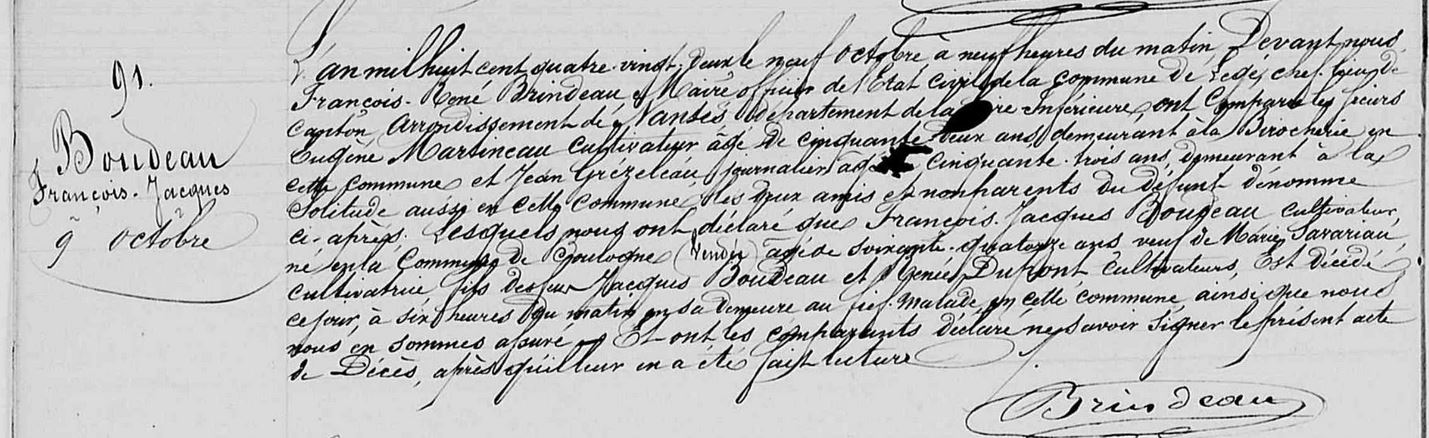 91.
Boudeau
François-Jacques
9 octobre
L'an mil huit cent quatre-vingt-deux le neuf octobre à neuf heures du matin, Devant nous
François-René Brindeau, Maire officier de l'Etat Civil de la Commune de Legé, chef-lieu de
Canton, arrondissement de Nantes département de la Inférieure, ont Comparu les sieurs
Eugène Martineau cultivateur âgé de cinquante-deux ans, demeurant à la Birocherie en
cette commune et Jean Grézeleau, journalier âgé cinquante-trois ans, demeurant à la
Solitude aussi en cette Commune, les deux amis et non parents du défunt dénommé
ci-après. Lesquels nous ont déclaré que François-Jacques Boudeau cultivateur,
né en la Commune de (Vendée) âgé de soixante-quatorze ans veuf de Marie
cultivatrice, fils de feu Jacques Boudeau et Renée Dupont cultivateurs, Est décédé
ce jour, à six heures du matin en sa demeure au fief-Malade, en cette commune ainsi que nous
nous en sommes assuré. Et ont les comparants déclaré ne savoir signer le présent acte
de Décès, après qu'il leur en a été fait lecture
Brindeau